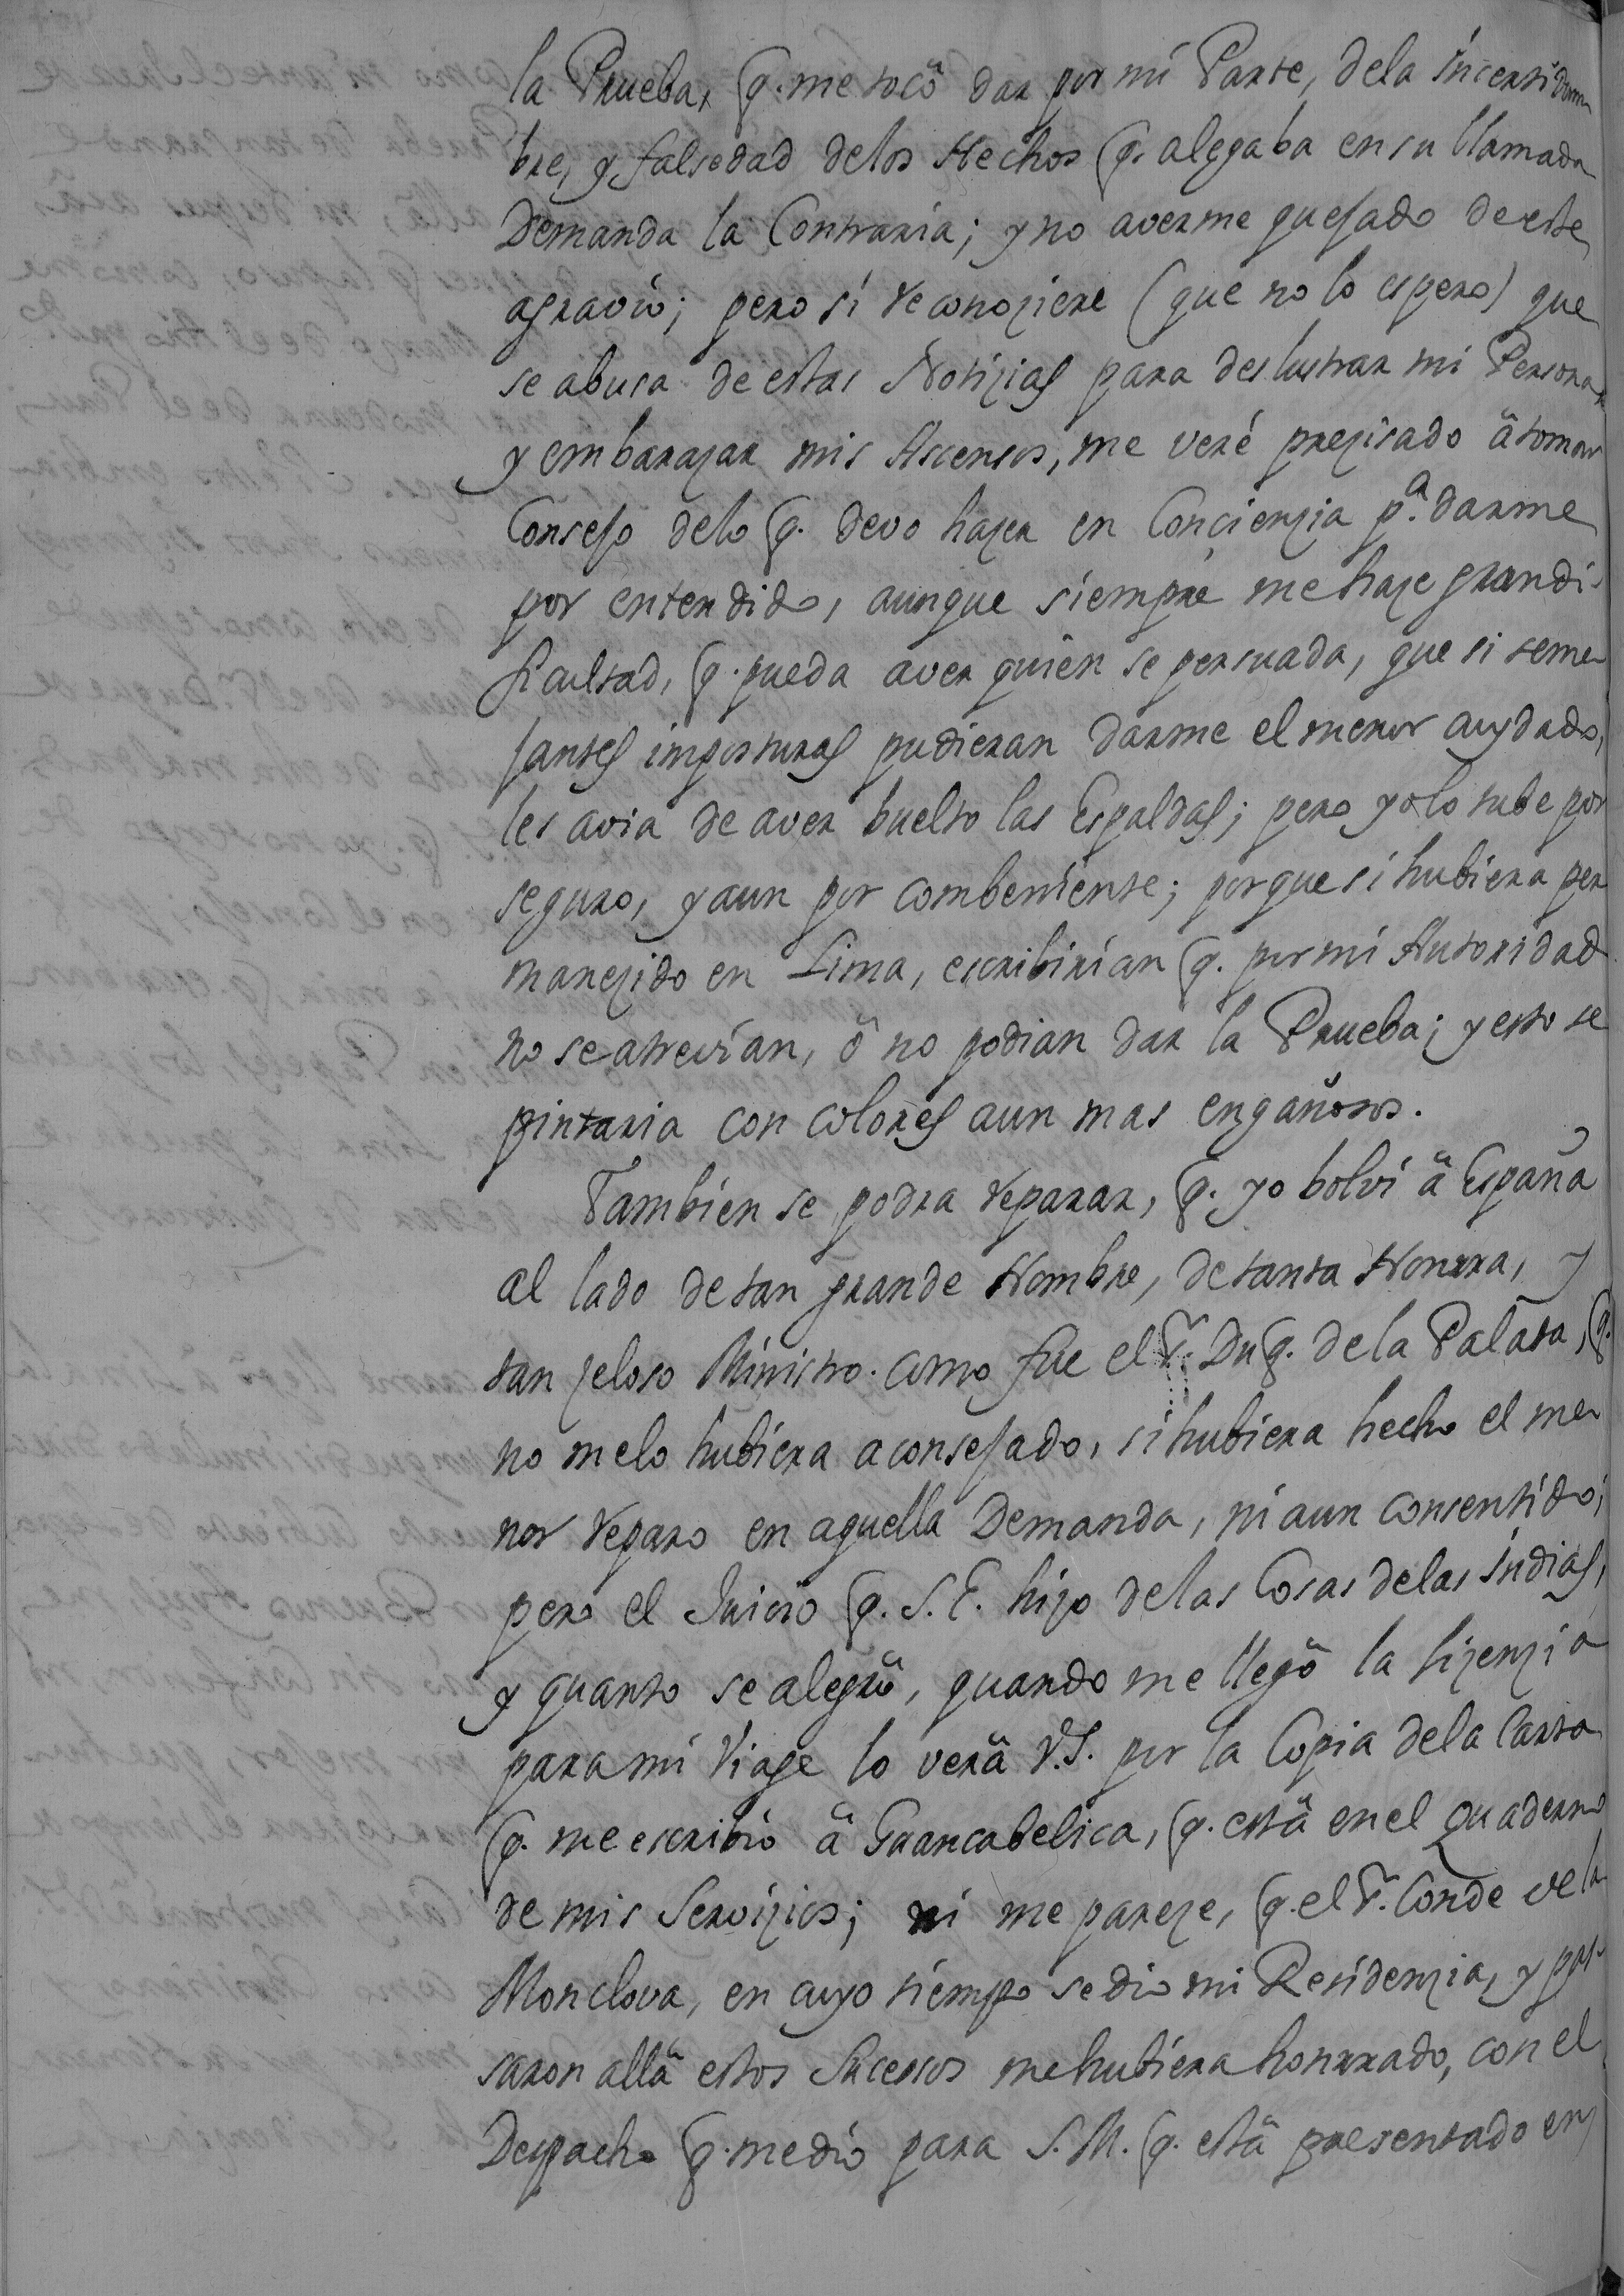 la Prueba, q. me tocô dar por mi Parte, dela Incertidum
bre, y falsedad delos Hechos q. alegaba en su llamada
Demanda la Contraria; y no averme quejado de este
agravio; pero si reconoziere (que no lo espero) que
se abusa de estas Notizias para deslustrar mi Persona,
y embarazar mis Ascensos, me veré prezisado â tomar
Consejo delo q. devo hazer en Concienzia pa. darme
por entendido, aunque siempre me haze gran di-
ficultad, q. pueda aver quien se persuada, que si seme
jantes imposturas pudieran darme el menor cuydado,
les avia de aver buelto las Espaldas; pero yo lo tube por
seguro, y aun por combeniente; porque si hubiera per
manezido en Lima, escribirían q. por mi Autoridad
no se atrevían, ô no podian dar la Prueba; y esto se
pintaria con colores aun mas engañosos.
Tambien se podra reparar, q. yo bolvi â España
al lado de tan grande Hombre, de tanta Honrra, y
tan zeloso Ministro como fue el Sr. Duq. de la Palata, q.
no melo hubiera aconsejado, si hubiera hecho el me
nor reparo en aquella Demanda, ni aun consentido;
pero el Juicio q. S. E. hizo delas Cosas delas Indias,
y quanto se alegrô, quando me llegô la lizenzia
para mi Viage lo verâ V.S. por la Copia dela Carta
q. me escribiò â Guancabelica, q. estâ en el Quaderno
de mis Servizios; ni me pareze, q. el Sr. Conde de la
Monclova, en cuyo tiempo se diò mi Residenzia, y pa
saron allâ estos Sucessos me hubiera honrrado, con el
Despacho q. me diò para S. M. q. estâ presentado en